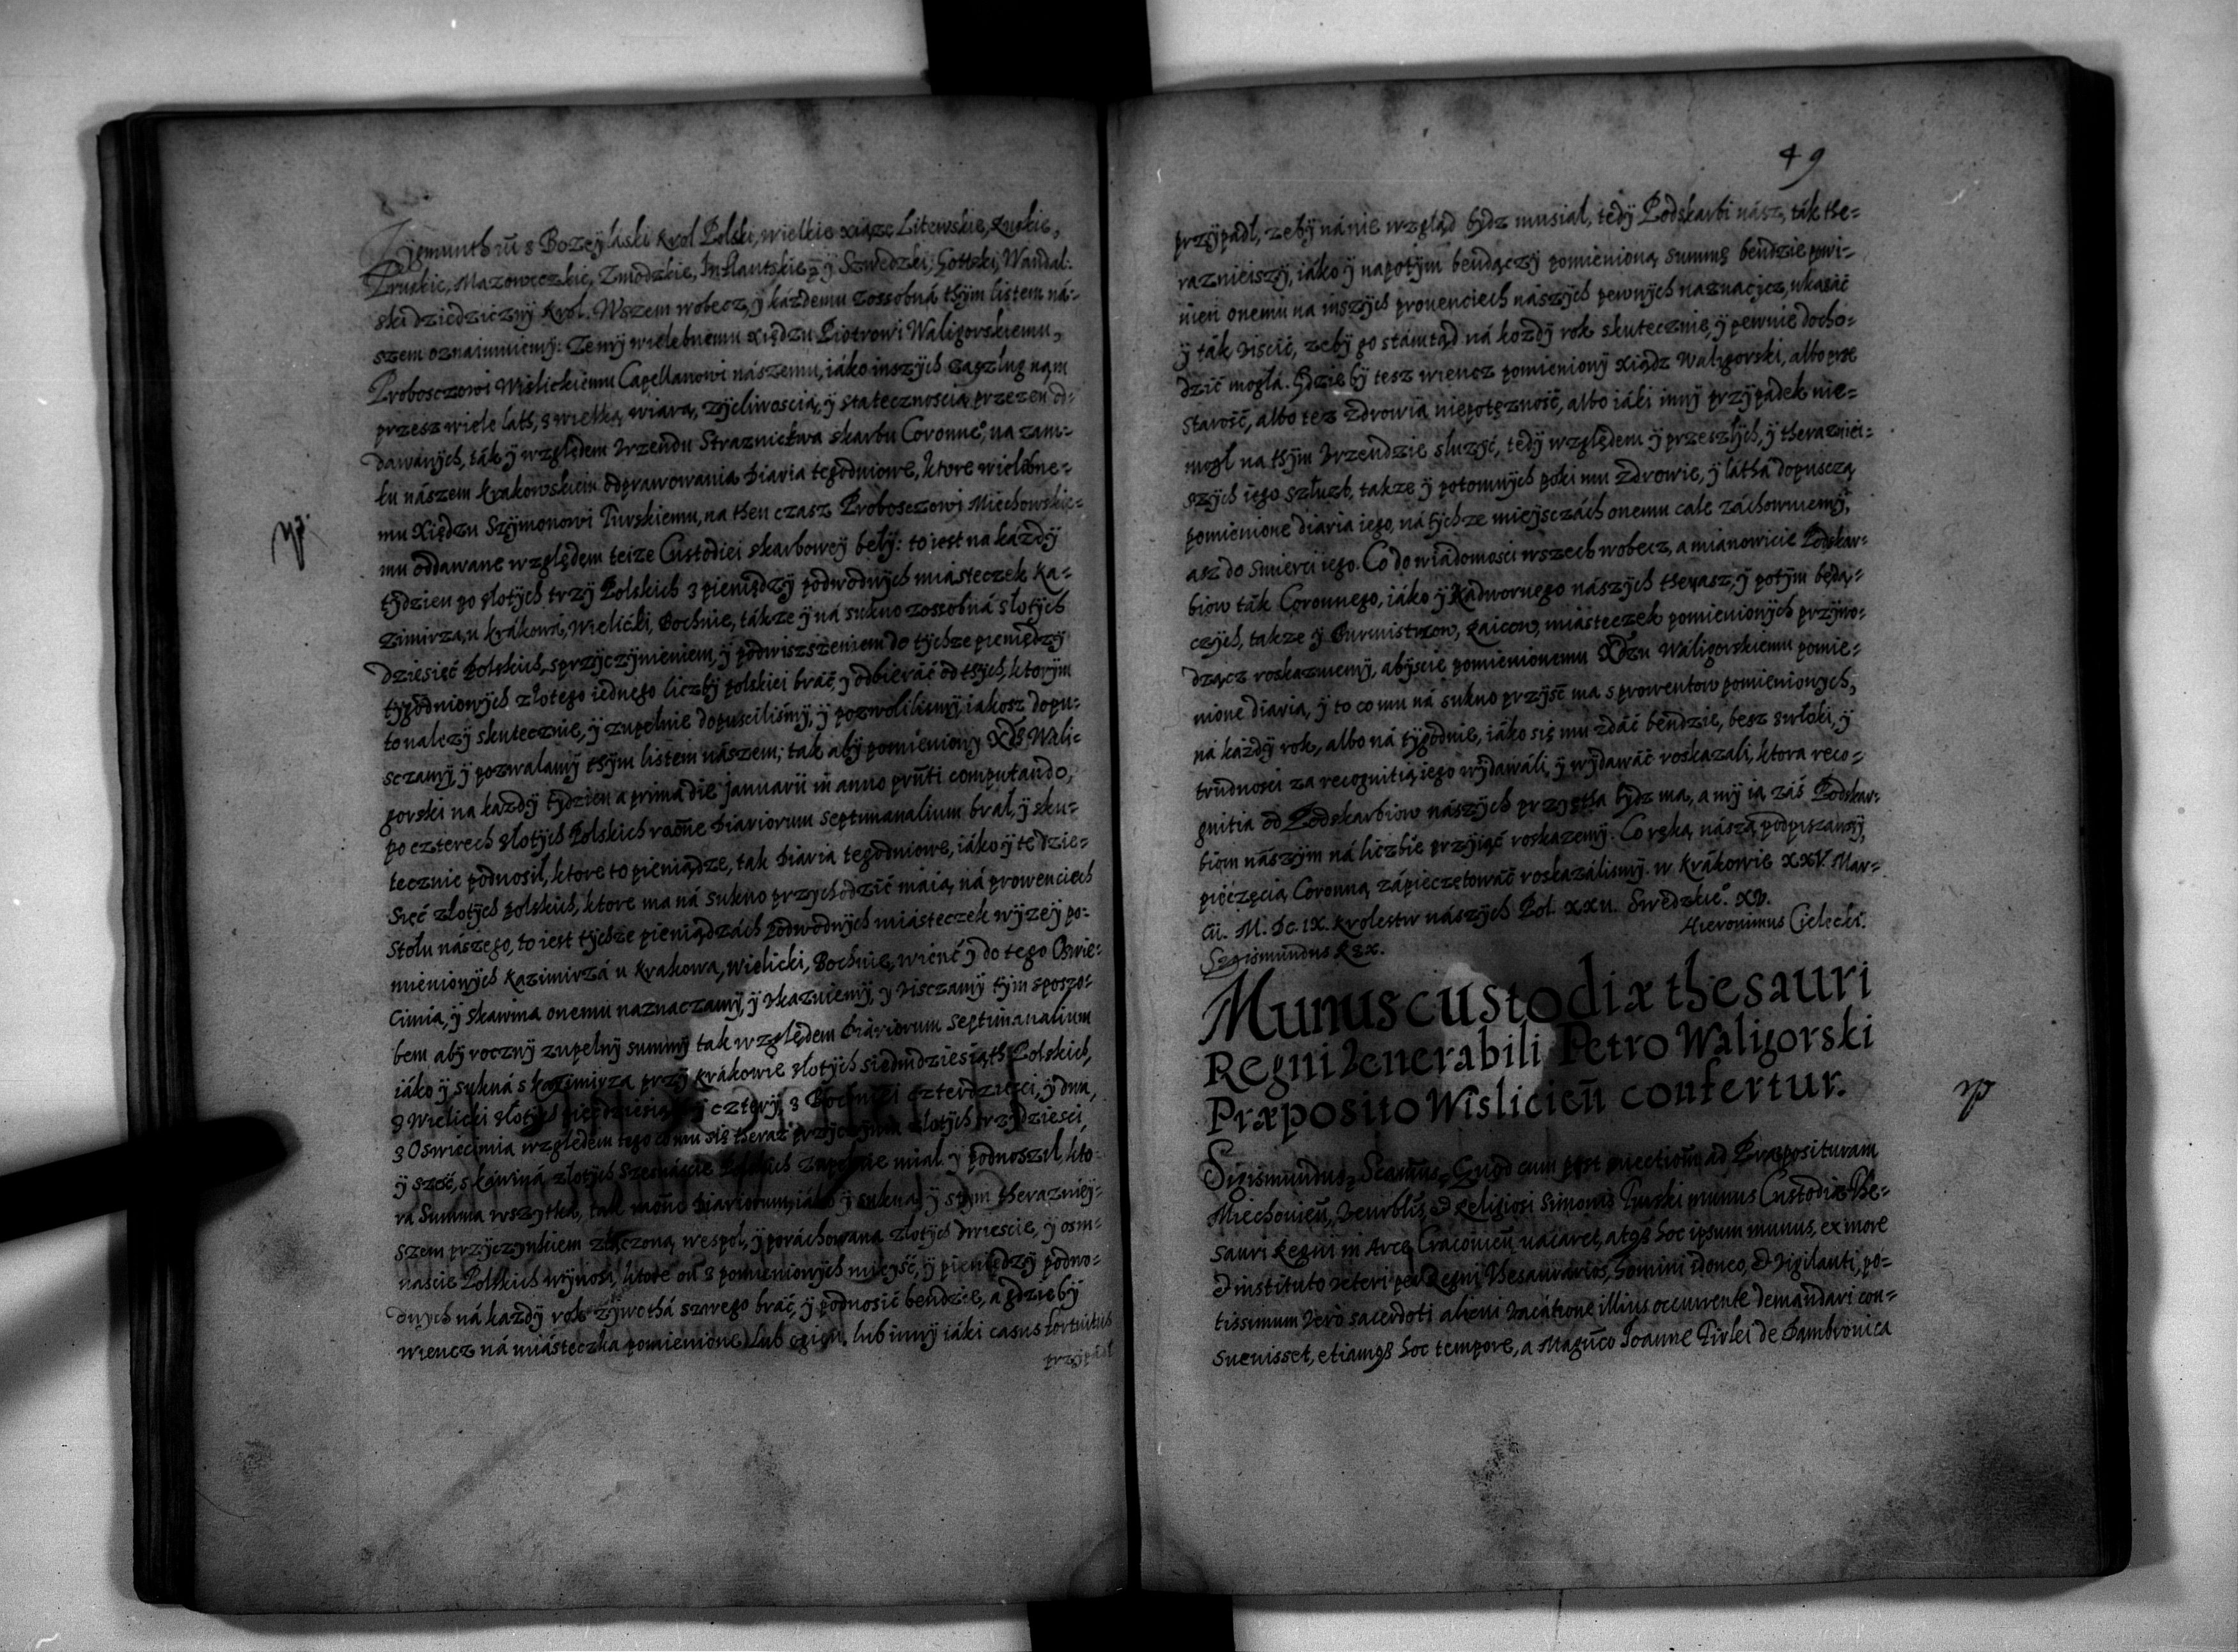 Zygmunth III z Bozey łáski Krol Polski, wielkie xiąze Litewskie, Ruskie,
Pruskie, Mazowieczkie, Zmodzkie, Inflantskie, ÿ Szwedzki, Gottski, Wandal:
ski dziedzicznÿ Krol. Wszem wobecz, ÿ kázdemu zossobná thÿm listem ná:
szem oznaimuiemÿ: Ze mÿ wielebnemu xiędzu Piotrowi Waligorskiemu,
Proboszczowi Wislickiemu Capellanowi nászemu, iáko inszÿch zasług nąm
przesz wiele lath, z wielką wiarą, zÿcliwoscią, ÿ statecznoscią przezeń od=
dawánÿch, ták ÿ względem Vrzendu Straznicktwa skarbu Coronne°, na zam=
ku nászem Krakowskiem odprawowania Diaria tegodniowe, ktore wielebne=
mu Xiędzu Szÿmonowi Turskiemu, na then czasz Proboszczowi Miechowskie=
mu oddawane względem teize Custodiei skarbowey belÿ: to iest na kázdÿ
tÿdzien po złotÿch trzÿ Polskich z pieniędzÿ podwodnÿch miásteczek Ka=
zimirza, u Krákowá, Wieliczki, Bochnie, tákze ÿ ná sukno zossobná złotÿch
dziesięć Polskich, sprzÿczÿnieniem, ÿ podwiszszeniem do tÿchze pieniędzÿ
tygodniowÿch złotego iednego liczbÿ polskiei bráć, ÿ odbieráć od tÿch, ktorÿm
to nalezÿ skutecznie, ÿ zupełnie dopuscilismÿ, ÿ pozwolilismÿ, iakosz dopu=
sczamÿ, ÿ pozwalamÿ thÿm listem nászem; tak abÿ pomienionÿ Xdz Wali=
gorski na kazdÿ tÿdzien a prima die Januarii in anno prnti computando,
po czterech złotÿch Polskich raõne Diariorum septimanalium brał, ÿ sku=
tecznie podnosił, ktore to pieniądze, tak Diaria tegodniowe, iáko ÿ te dzie=
sięć złotÿch polskich, ktore ma ná sukno przÿchodzić máią, ná prowenciech
stołu nászego, to iest tÿchze pieniądzách podwodnÿch miásteczek wÿzeÿ po=
mienionÿch Kazimirzá u Krakowa, Wielicki, Bochnie, wienc ÿ do tego Oswie=
cimia, ÿ Skawina onemu naznaczamÿ, ÿ Vkazuiemÿ, ÿ Visczamÿ tÿm sposzo=
bem abÿ rocznÿ zupełnÿ summÿ tak względem Diariorum septimanalium
iáko ÿ sukná s Kazimirza przÿ Krákowie złotÿch siedmdziesiąth Polskich,
z Wielicki złotÿch pięćdziesiąt ÿ czterÿ, z Bochniei czterdziesci, ÿ dwa,
z Oswiecimia względem tego co mu się theraz przÿczÿnia złotÿch trzÿdziesci,
ÿ szesc, s Káwiná złotÿch szesnáscie Polskich zupełnie miał ÿ podnoszil, kto
ra Summa wszÿtka, tak raõne Diariorum, iáko ÿ sukna, ÿ s tÿm theraznieÿ=
szem przÿczÿnkiem złączoną wespoł, ÿ poráchowaną złotÿch dwiescie, ÿ osm=
nascie Polskich wÿnosi, ktore on z pomienionÿch mieÿsc, ÿ pieniędzÿ podwo=
dnÿch ná kazdÿ rok zÿwothá szwego bráć, ÿ podnosić bendzie, a gdziebÿ
wiencz ná miásteczka pomienione lub ogień, lub innÿ iáki casus fortuitus
przÿpadł
49
przÿpadł, zebÿ ná nie wzgląd bÿdz musiał, tedÿ Podskarbi nász, ták the=
raznieiszÿ, iáko ÿ napotÿm bendączÿ pomienioną summę bendzie powi=
nien onemu na inszÿch prouenciech nászÿch pewnÿch naznaczicz, ukazáć
ÿ ták Viscić, zebÿ go stámtąd ná kozdÿ rok skutecznie, ÿ pewnie docho=
dzić mogłá. Gdzie bÿ tesz wiencz pomienionÿ Xiądz Waligorski, albo prze
starość, albo tez zdrowia niepotęznosć, albo iáki innÿ przÿpadek nie=
mogł na thÿm Vrzendzie słuzÿć, tedÿ względem ÿ przeszłÿch, ÿ theraznieÿ=
szÿch iego szłuzb, takze ÿ potomnÿch poki mu zdrowie, ÿ látha dopusczą
pomienione diaria iego, ná tÿchze mieÿsczách onemu cale záchowuiemÿ,
asz do smierci iego. Co do wiádomosci wszech wobecz, a mianowicie Podskar=
biow ták Coronnego, iáko ÿ Nadwornego nászÿch therasz, ÿ potÿm będą=
czÿch, takze ÿ Burmistrzow, Raicow, miásteczek pomienionÿch przÿwo=
dzącz roskazuiemÿ, abÿscie pomienionemu Xdzu Waligorskiemu pomie=
nione diaria, ÿ to co mu ná sukno przÿsć ma s prowentow pomienionÿch,
ná kazdÿ rok, albo ná tÿgodnie, iáko się mu zdáć bendzie, besz zwłoki, ÿ
trudnosci za recognitią iego wÿdawáli, ÿ wÿdawáć roskazali, ktora reco=
gnitia od Podskarbiow nászÿch przÿęta bÿdz ma, a mÿ ią záś Podskar=
biom nászÿm ná liczbie przÿiąć roskazemÿ. Co ręką nászą podpiszawszÿ,
pieczęcią Coronną zápieczętowáć roskazálismÿ. w Krákowie XXV. Mar=
cii. M. Dc. IX. Krolestw nászÿch Pol. XXII. Swedzkie°. XV.
Sigismundus Rex.
Hieronimus Cielecki.
Munus custodiæ thesauri
Regni Venerabili Petro Waligorski
Præposito Wislicieñ confertur.
Sigismundus, Quod cum post euectionem ad Præposituram
Miechouieñ, Venrblis, & Religiosi Simonis Turski munus Custodiæ The=
sauri Regni in Arce Cracouieñ uacaret, atq3 hoc ipsum munus, ex more
& instituto veteri per Regni Thesaurarios, homini idoneo, & vigilanti, po=
tissimum verò sacerdoti alicui vacatione illius occurrente demandari con=
sueuisset, etiamq3 hoc tempore, a Magnco Ioanne Firlei de Dambrouica